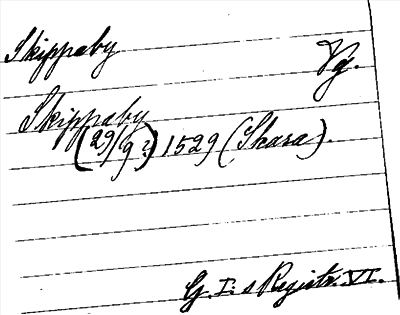 Skippaby Vg.
Skippaby
(29/9?) 1529 (Skara).
G. I:s Registr. VI.